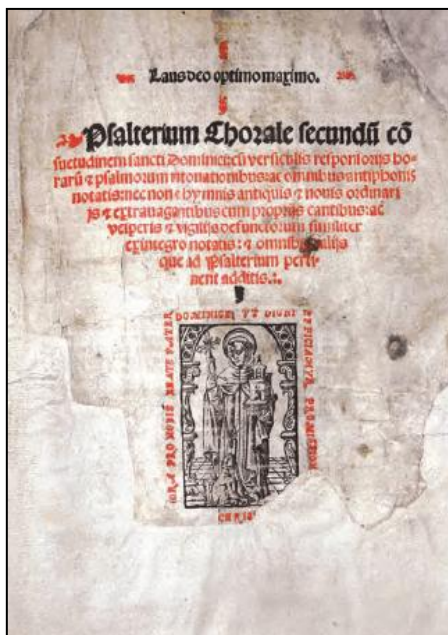 Laus deo optimo maximo.
Psalterium Chorale secundū cō
suetudinem sancti Dominici: cū versiculis responsorijs ho-
rarū ⁊ psalmorum intonationibus: ac omnibus antiphonis
notatis: nec non ⁊ hymnis antiquis ⁊ nouis ordinari
js ⁊ extrauagantibus cum proprijs cantibus: ac
vesperis ⁊ vigilijs defunctorum similiter
ex integro notatis: ⁊ omnibus alijs
que ad Psalterium perti-
nent additis.
ORA PRO NOBIS BEATE PATER
DOMINICE: VT DIGNI
EFFICIAMVR PROMISSION
CHRIS